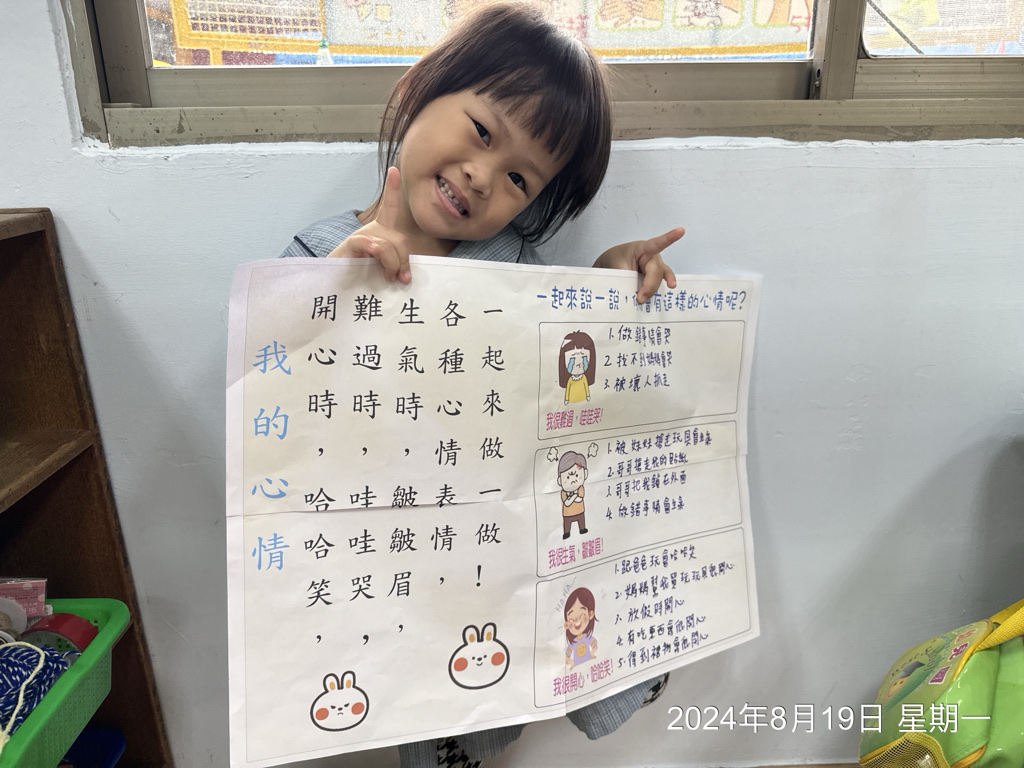 我的心情
開心時，哈哈笑，
難過時，哇哇哭，
生氣時，皺皺眉，
各種心情表情，
一起來做一做！
一起來說一說，會有這樣的心情呢？
1. 做錯事情會哭
2. 找不到媽媽會哭
3. 被壞人抓走
我很難過，哇哇哭！
1. 被妹妹搶走玩具會生氣
2. 哥哥搶走我的貼紙
3. 哥哥把我鎖在外面
4. 做錯事情會生氣
我很生氣，皺皺眉！
1. 跟爸爸玩會哈哈笑
2. 媽媽幫我買玩玩具很開心
3. 放假時開心
4. 有吃東西會很開心
5. 得到禮物會很開心
我很開心，哈哈笑！
2024年8月19日 星期一